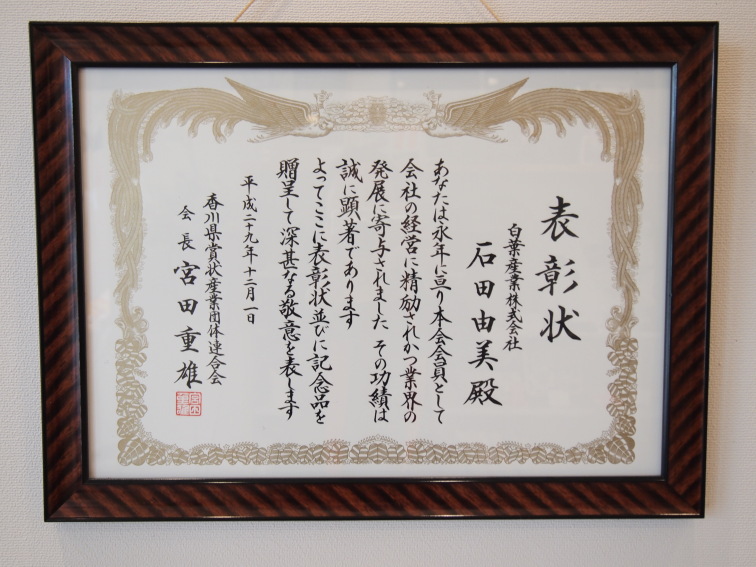 表彰状
白葉産業株式会社
石田由美殿
あなたは永年に亘り本会会員として
会社の経営に精励されかつ業界の
発展に寄与されました その功績は
誠に顕著であります
よってここに表彰状並びに記念品を
贈呈して深甚なる敬意を表します
平成二十九年十二月一日
香川県賞状産業団体連合会
会長 宮田重雄